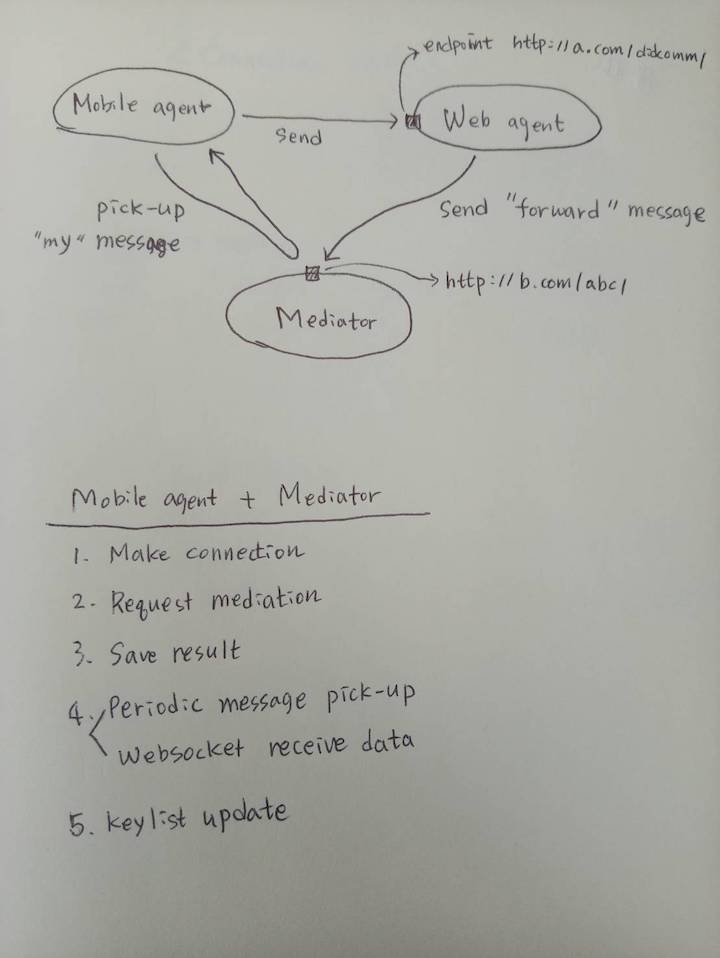 endpoint http://a.com/didcomm/
Mobile agent
Send
Web agent
pick-up
"my" message
Send "forward" message
http://b.com/abc/
Mediator
Mobile agent + Mediator
1. Make connection
2. Request mediation
3. Save result
4. Periodic message pick-up
Websocket receive data
5. keylist update